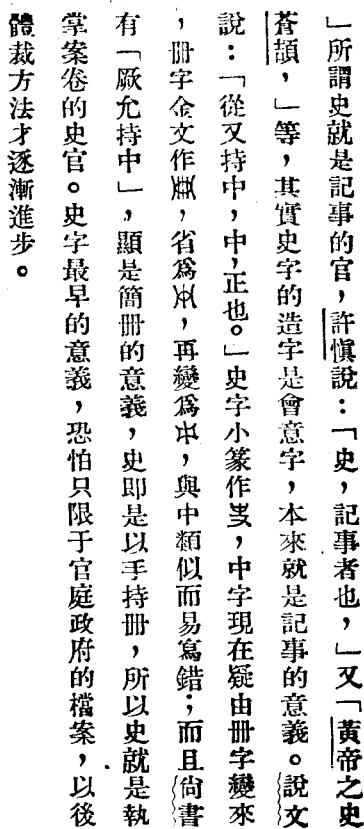 」所謂史就是記事的官，許愼說：「史，記事者也，」又「黃帝之史
蒼頡，」等，其實史字的造字是會意字，本來就是記事的意義。說文
說：「從又持中，中，正也。」史字小篆作，中字現在疑由冊字變來
，冊字金文作，省爲，再變爲，與中類似而易寫錯；而且尙書
有「厥允持中」，顯是簡冊的意義，史即是以手持冊，所以史就是執
掌案卷的史官。史字最早的意義，恐怕只限于官庭政府的檔案，以後
體裁方法才逐漸進步。